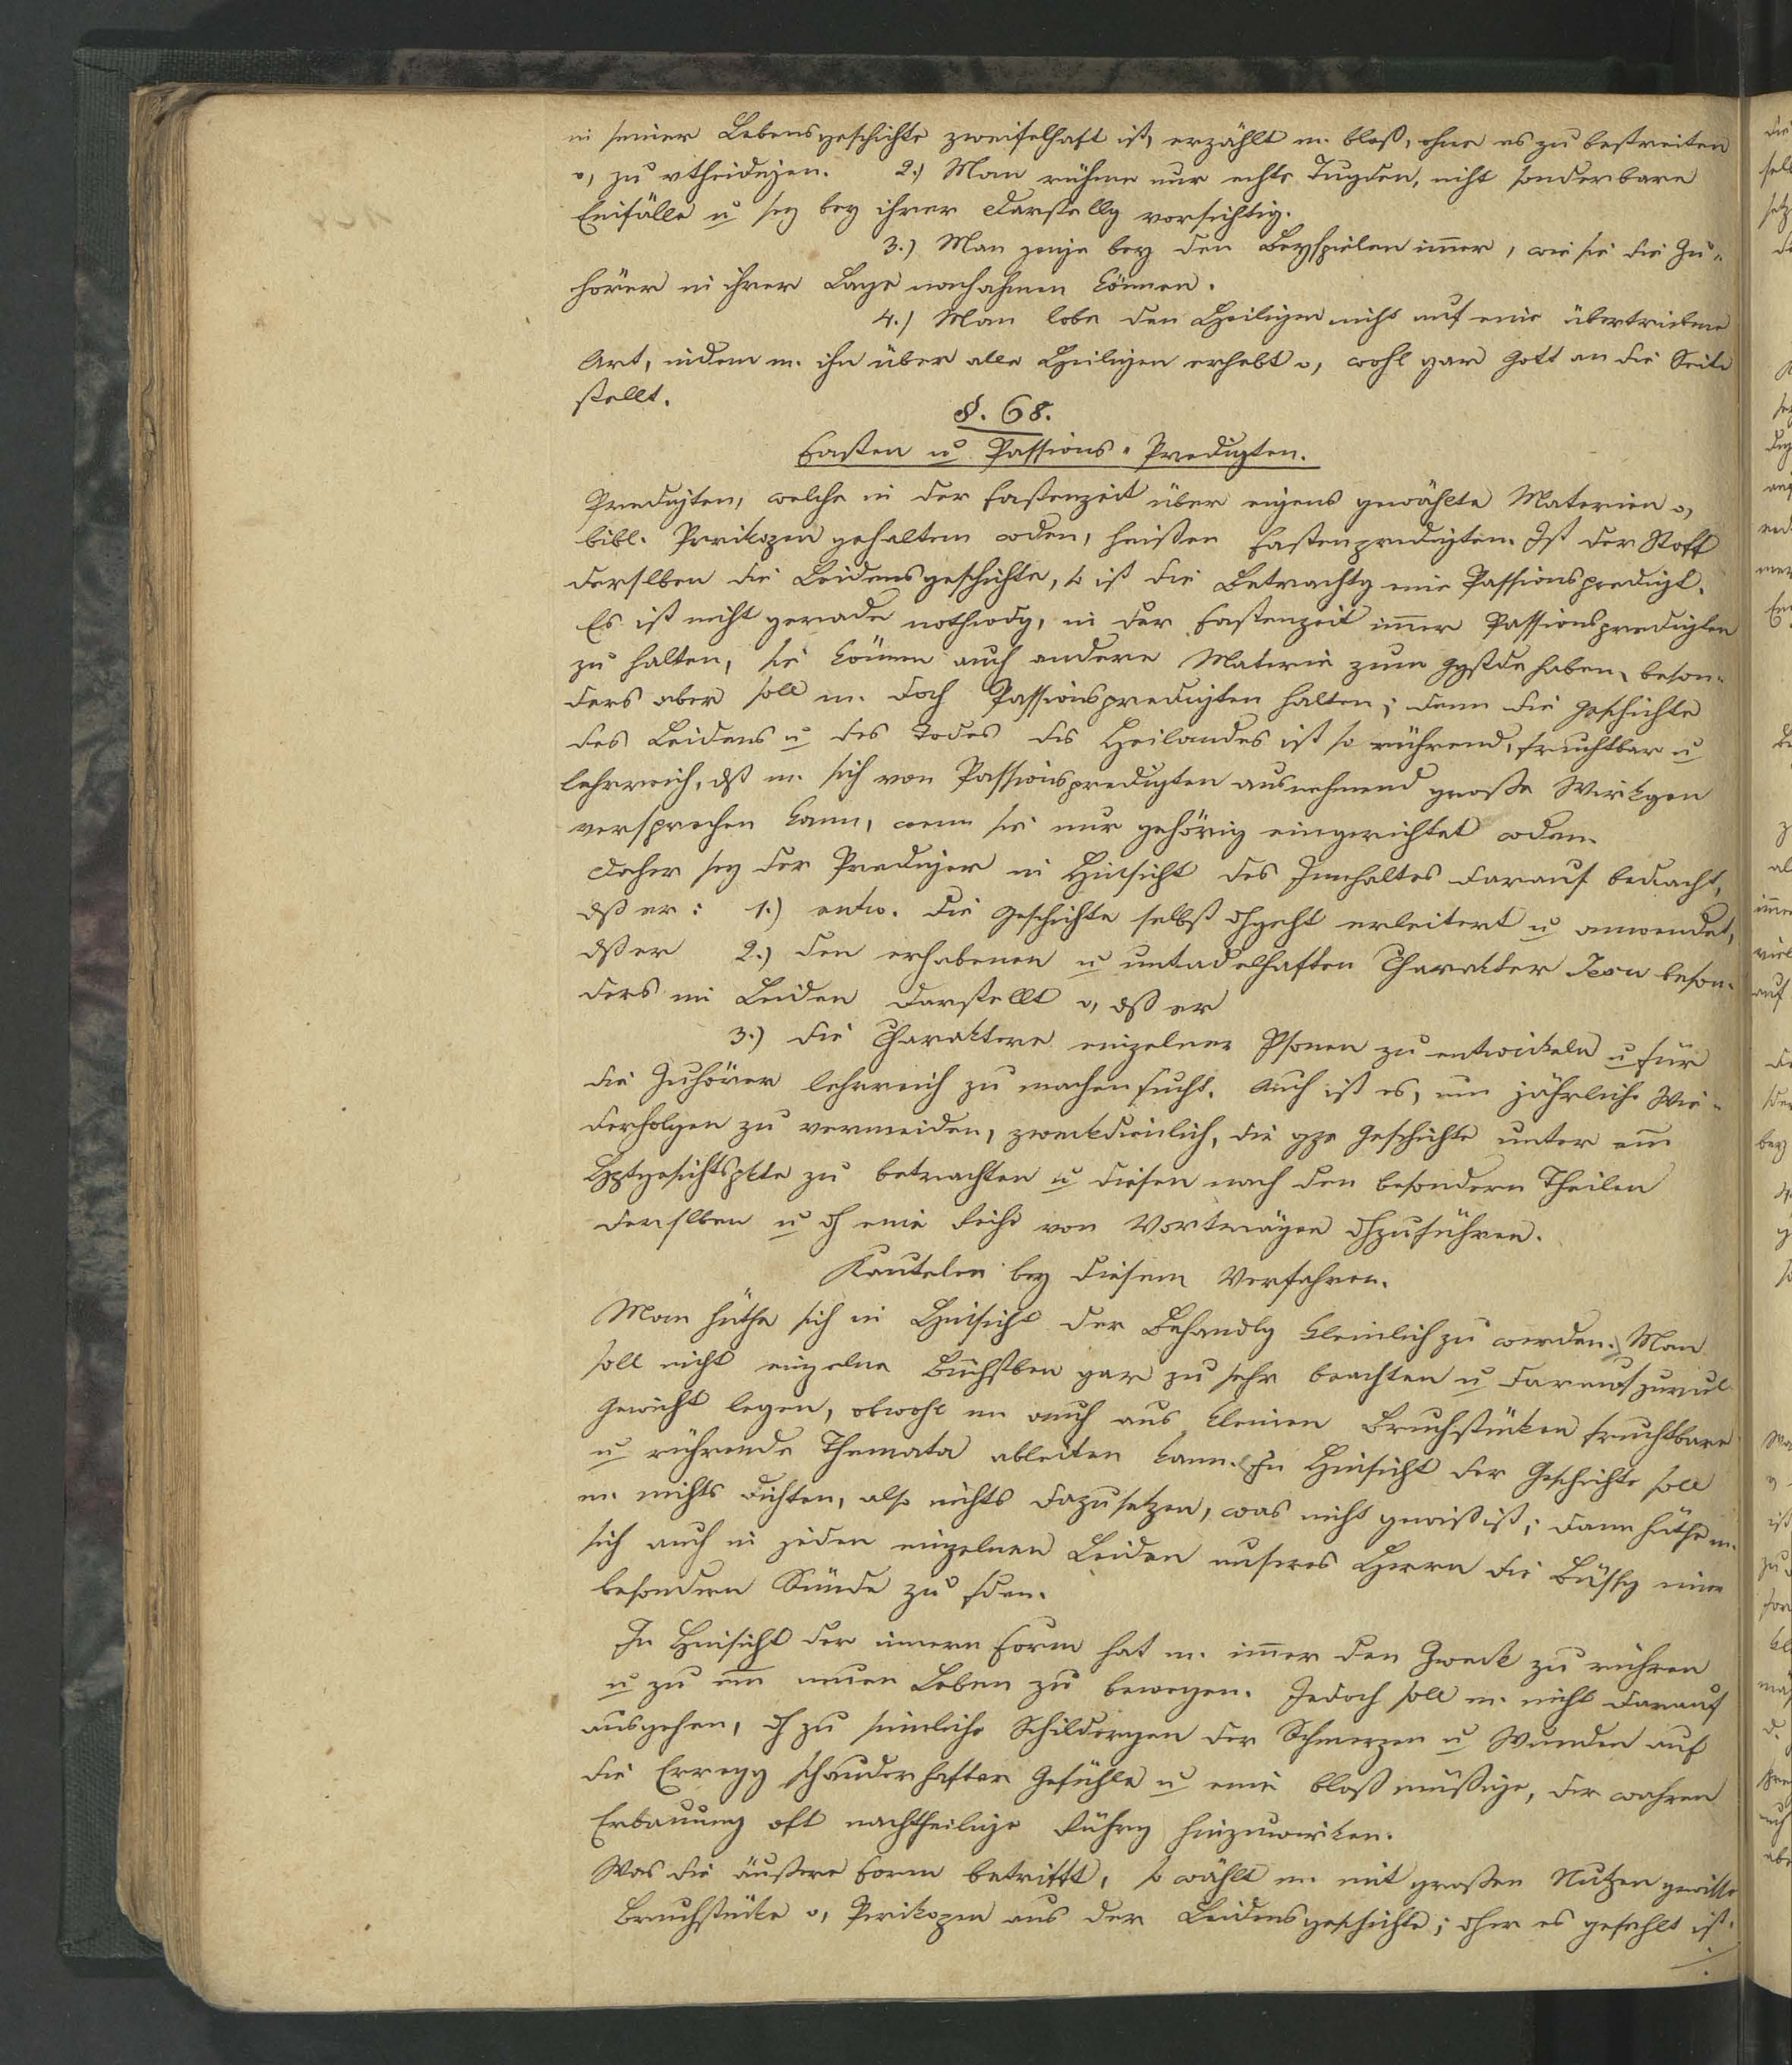 in seiner Lebensgeschichte zweifelhaft ist, erzählt m. bloß, ohne es zu bestreiten
o, zu vtheidigen. 2.) Man rühme nur echte Tugden, nicht sonderbare
Einfälle u sey bey ihrer Darstellg vorsichtig.
3.) Man zeige bey den Beyspielen im̄er, wie sie die Zu„
hörer in ihrer Lage nachahmen können.
4.) Man lobe den Heiligen nicht auf eine übertriebene
Art, indem m. ihn über alle Heiligen erhebt o, wohl gar Gott an die Seite
stellt.
§. 68.
Fasten u Passions-Predigten.
Predigten, welche in der Fastenzeit über eigens gewählte Materien o,
bibl. Perikopen gehalten wden, heißen Fastenpredigten. Ist der Stoff
derslben die Leidensgeschichte, so ist die Betrachtg eine Passionspredigt.
Es ist nicht gerade nothwdg, in der Fastenzeit im̄er Passionspredigten
zu halten, sie können auch andere Materie zum Ggstde haben, beson-
ders aber soll m. doch Passionspredigten halten; denn die Geschichte
des Leidens u des Todes des Heilandes ist so rührend, fruchtbar u
lehrreich, dß m. sich von Passionspredigten ausnehmend große Wirkgen
versprechen kann, wenn sie nur gehörig eingerichtet wden.
Daher sey der Prediger in Hinsicht des Innhaltes darauf bedacht,
dß er: 1.) entw. die Geschichte selbst dhgeht erleitert u anwendet,
dß er 2.) den erhabenen u untadelhaften Charakter Jesu beson-
ders im Leiden darstellt o, dß er
3.) die Charaktere einzelner Psonen zu entwickeln u für
die Zuhörer lehrreich zu machen sucht. Auch ist es, um jährliche Wie-
derholgen zu vermeiden, zweckdienlich, die gze Geschichte unter em̄
Hptgesichtspkte zu betrachten u diesen nach den besondern Theilen
derslben u dh eine Reihe von Vorträgen dhzuführen.
Kautelen bey diesem Verfahren.
Man hüthe sich in Hinsicht der Behandlg kleinlich zu werden. Man
soll nicht einzelne Buchstben gar zu sehr beachten u darauf zuviel
Gewicht legen, obwohl m auch aus kleinen Bruchstücken fruchtbare
u rührende Themata ableiten kann. In Hinsicht der Geschichte soll
m. nichts dichten, also nichts dazusetzen, was nicht gewiß ist; dann hüthe m.
sich auch in jeden einzelnen Leiden unseres Herrn die Büßg einer
besondern Sünde zu fden.
In Hinsicht der innern Form hat m. im̄er den Zweck zu rühren
u zu em̄ neuen Leben zu bewegen. Jedoch soll m. nicht darauf
ausgehen, dh zu sinnliche Schildergen der Schmerzen u Wunden auf
die Erregg schauderhafter Gefühle u eine bloß müßige, der wahren
Erbauung oft nachtheilige Rührg hinzuwirken.
Was die äußere Form betrifft, so wählt m. mit großen Nutzen gewisse
Bruchstücke o, Perikopen aus der Leidensgeschichte; dher es gefehlt ist.